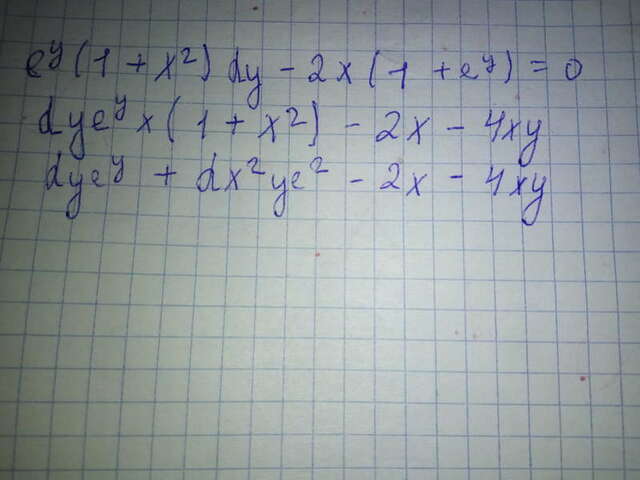 e^y(1+x²)dy-2x(1+e^y)=0
dye^yx(1+x²)-2x-4xy
dye^y+dx²ye²-2x-4xy